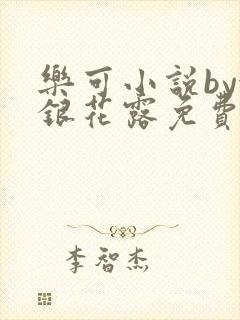 樂可小說by
銀花露免費
李智杰